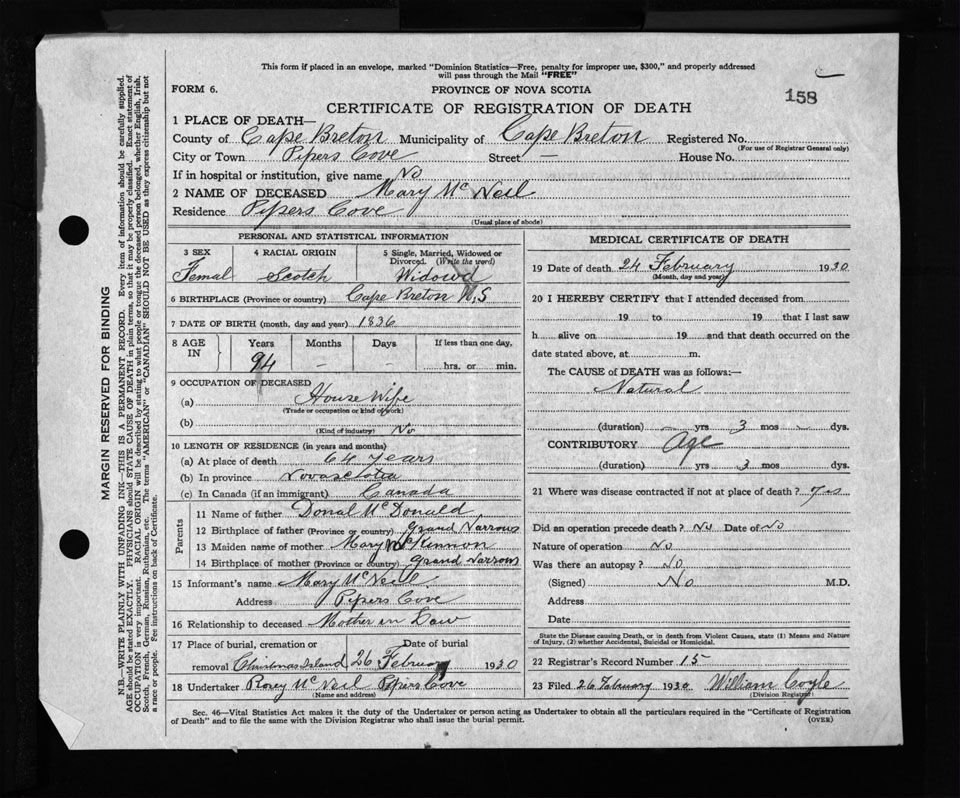 This form if placed in an envelope, marked "Dominion Statistics—Free, penalty for improper use, $300," and properly addressed
will pass through the Mail "FREE"
FORM 6.
PROVINCE OF NOVA SCOTIA
158
CERTIFICATE OF REGISTRATION OF DEATH
1 PLACE OF DEATH—
County of Cape Breton Municipality of Cape Breton Registered No.
(For use of Registrar General only)
City or Town Pipers Cove Street — House No.
If in hospital or institution, give name No
2 NAME OF DECEASED Mary Mc Neil
Residence Pipers Cove
(Usual place of abode)
PERSONAL AND STATISTICAL INFORMATION
3 SEX 4 RACIAL ORIGIN 5 Single, Married, Widowed or
Divorced. (Write the word)
Femal Scotch Widowd
6 BIRTHPLACE (Province or country) Cape Breton N,S
7 DATE OF BIRTH (month, day and year) 1836
8 AGE IN Years Months Days If less than one day,
94 — — hrs. or min.
9 OCCUPATION OF DECEASED
(a) House Wife
(Trade or occupation or kind of work)
(b) No
(Kind of industry)
10 LENGTH OF RESIDENCE (in years and months)
(a) At place of death 64 years
(b) In province Novascotia
(c) In Canada (if an immigrant) Canada
Parents
11 Name of father Donal McDonald
12 Birthplace of father (Province or country) Grand Narrows
13 Maiden name of mother Mary McKinnon
14 Birthplace of mother (Province or country) Grand Narrows
15 Informant's name Mary McNeil
Address Pipers Cove
16 Relationship to deceased Mother in Law
17 Place of burial, cremation or Date of burial
removal Christmas Island 26 February 1930
18 Undertaker Rorey McNeil Pipers Cove
(Name and address)
MEDICAL CERTIFICATE OF DEATH
19 Date of death 24 February 1930
(Month, day and year)
20 I HEREBY CERTIFY that I attended deceased from
19 to 19 that I last saw
h alive on 19 and that death occurred on the
date stated above, at m.
The CAUSE of DEATH was as follows:—
Natural
(duration) — yrs 3 mos — dys.
CONTRIBUTORY Age
(duration) yrs 3 mos. dys.
21 Where was disease contracted if not at place of death?
Did an operation precede death? No Date of No
Nature of operation No
Was there an autopsy? No
(Signed) No M.D.
Address
Date
State the Disease causing Death, or in death from Violent Causes, state (1) Means and Nature
of Injury, (2) whether Accidental, Suicidal or Homicidal.
22 Registrar's Record Number 15
23 Filed 26 February 1930 William Coyle
(Division Registrar)
Sec. 46—Vital Statistics Act makes it the duty of the Undertaker or person acting as Undertaker to obtain all the particulars required in the "Certificate of Registration
of Death" and to file the same with the Division Registrar who shall issue the burial permit.
(OVER)
MARGIN RESERVED FOR BINDING
N.B.—WRITE PLAINLY WITH UNFADING INK—THIS IS A PERMANENT RECORD. Every item of information should be carefully supplied.
AGE should be stated EXACTLY. PHYSICIANS should STATE CAUSE OF DEATH in plain terms, so that it may be properly classified. Exact statement of
OCCUPATION is very important. RACIAL ORIGIN will be described by stating to what people or tongue the deceased person belonged, whether English, Irish,
Scotch, French, German, Russian, Ruthenian, etc. The terms "AMERICAN" or "CANADIAN" SHOULD NOT BE USED as they express citizenship but not
a race or people. See instructions on back of Certificate.